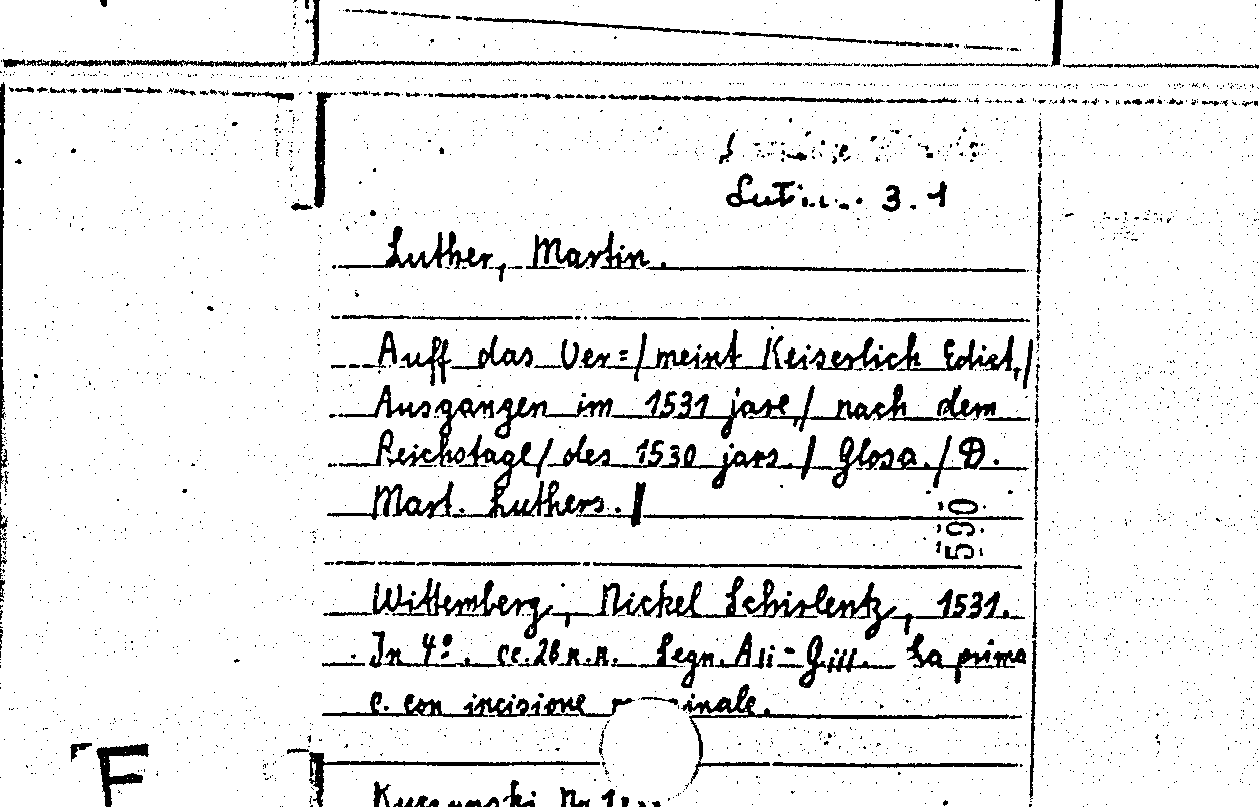 3.1
Luther, Martin.
Auff das Ver=/meint Keiserlich Edict,/
Ausgangen im 1531 jare,/ nach dem
Reichstage/ des 1530 jars./ Glosa./ D.
Mart. Luthers.
590
Wittemberg, Nickel Schirlentz, 1531.
In 4º. cc.26 n.n. Segn. Aii-Giii. La prima
c. con incisione
F
Kuczynski Nr.